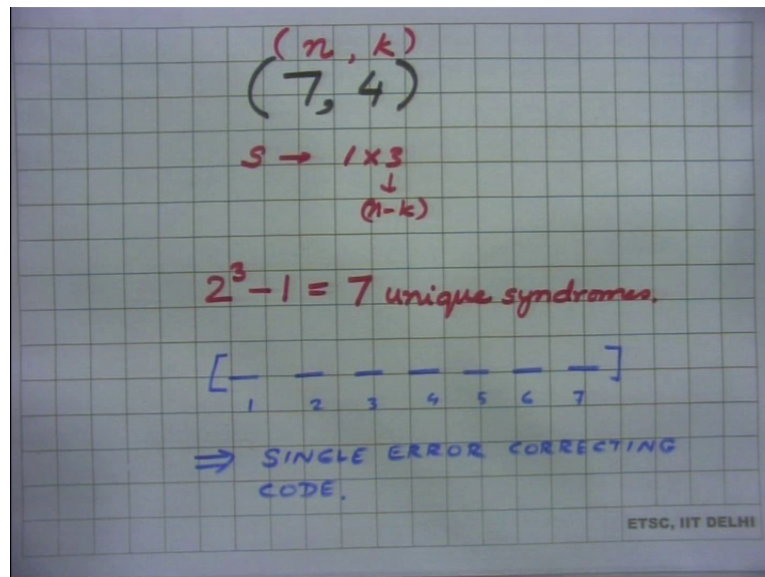 (n, k)
(7, 4)
S → 1×3
↓
(n-k)
2³ - 1 = 7 unique syndromes.
[_ _ _ _ _ _ _]
1 2 3 4 5 6 7
⇒ SINGLE ERROR CORRECTING
CODE.
ETSC, IIT DELHI